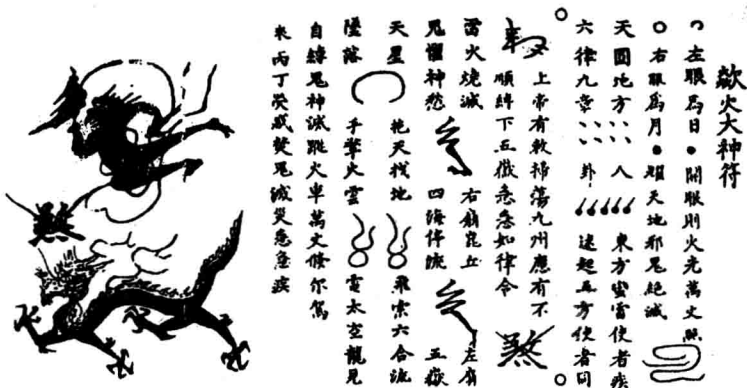 欻火大神符
左眼為日 開眼則火光萬丈照
右眼為月 耀天地邪鬼絕滅
天圓地方 人 東方蠻雷使者疾
六律九章 卦 速起五方使者同
上帝有敕掃蕩九州應有不
順綽下五嶽急急如律令 煞
雷火燒滅 右扇崑丘 左扇
鬼懼神愁 四海停流 五嶽
天星 拖天找地 飛索六合流
墜落 手擎火雲 電太空龍見
自縛鬼神滅跡火車萬丈倏尔駕
來丙丁熒惑焚鬼滅災急急疾